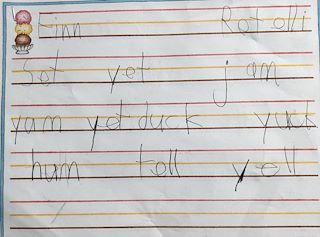 Finn Rotolli
Sot yet jam
yam yet duck yuck
hum tell yell